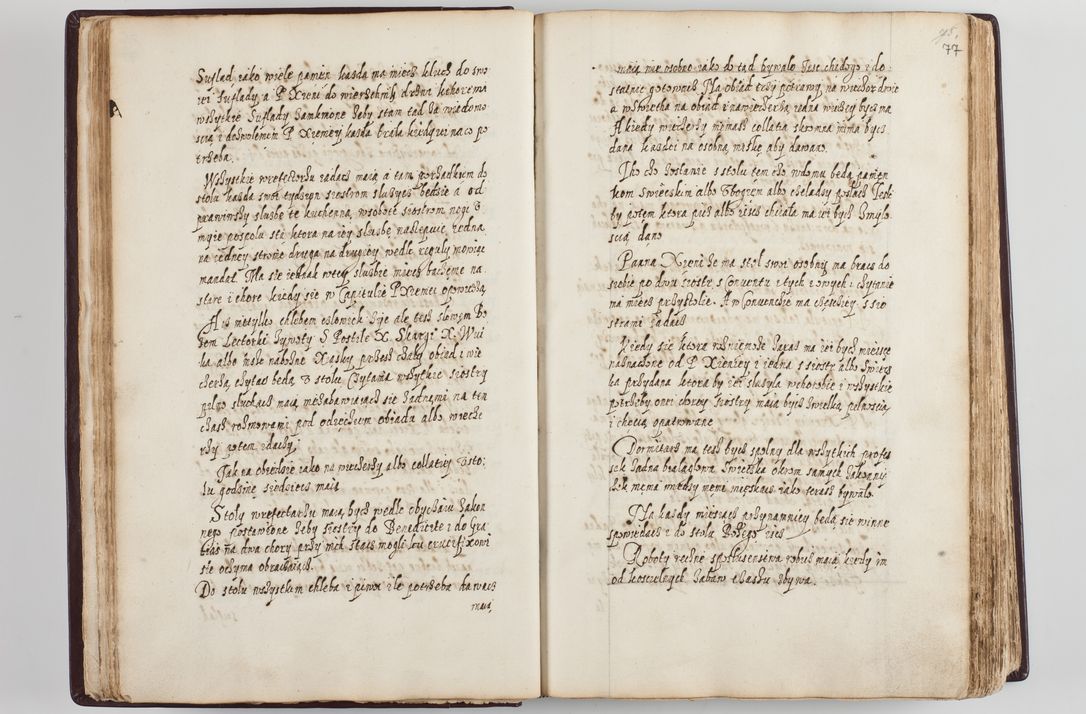 Suflad iako wiele panien kasda ma miecz klucz do swo
iei suflady a P Xieni do wierzchnich drzwi
wszytkie Suflady zamkmone zeby stąn tąd za wiedomo
scią i dozwolenim P Xiemęy kasda brała kiedy iei na co po
trzeba.
Wszystkie wrefectorzu iadacz maią a tam porzankiem do
stolu kasda swoi tydzyen siostrom sluzycz będzie a od
prawiwszy sluzbę tę kuchenną, wsobotę siostrom nogi
myie pospolu stą ktora na iey sluzbę nastepuie, iedna
na iedney stronie druga na drugiey wedle reguly mowiąc
mandat. Ma sie iednak wtey sluzbie miecz baczęnie na
stare i chore kiedy sie w Capitulie P Xiemei opowiedzą
A iz nietylko chlebem czlowiek zyie ale tesz slowem Bo
zem Lectorki zywoty S Postile X. Skargi X. Wui
ka albo insze nabozne Xiaszky przesz czaly obiad i wie
cherzą czytacz będą v stolu. Czytania wszytkie siostry
pilno sluchacz maią niezabawiaiącz sie zadnemi na ten
czasz rozmowami pod odięcium obiadu albo wiecze
rzy potem idączy.
Jak na obiedzie iako na wieczerzy albo collatiey v sto:
lu godzinę siedziecz maią
Stoly wrefectarzu maią bycz wedle obyczaiu zakon
nego postawione zeby siestry do Benedicite i do Gra
tias na dwa chory przy nich stacz mogli ku crucifixowi
sie oczyma obracaiącz.
Do stolu wszystkim chleba i piwa ile potrzeba dawacz
maią
45.
77
maią nie osobno iako do tąd bywało Jesc chudogo i do:
statnie gotowacz Na obiad trzy potrawy, na wieczor dwie
a wswięta na obiad i nawieczerzą iedna więczey bycz ma
A kiedy wieczerzy niemasz collatia skromna mima bycz
dana kazdei na osobną miskę aby dawano.
Jho czo zostanie s stolu tem czo wdomu bedą panien
kom swieczkim albo vbogiem albo czeladzy poslacz Jest
by potem ktora picz albo iescz chciała ma iei bycz zmylo
scią dano
Paana Xieni ze ma stol swoi osobny ma bracz do
siebie po dwu siostr s Conuentu i tych i owych: czytanie
ma miecz przystolie. A w Conuencie ma czesciey s sio
strami iadacz
Kiedy sie ktora rozniemoze zaraz ma iei bycz mieisce
naznaczone od P Xieniey i iedna s siostr albo swiecz
ka przydana ktora by iei sluzyla wchorobie i wszystkie
potrzeby onei chorey siostry maią bycz zwielką pilnoscią
i checią opatrowane
Dormitarz ma tesz bycz spolny dla wszytkich profes
sek zadna bialaglowa swieczka okrom samych zakonni
czek niema miedzy niemi mięskacz iako terasz bywało.
Na kazdy miesiącz przynamniey będą sie winne
spowiedacz i do stolu Bożego iscz
Roboty ręczne spossuszensiwa robicz maią kiedy im
od koscielnych zabaw czassu zbywa.